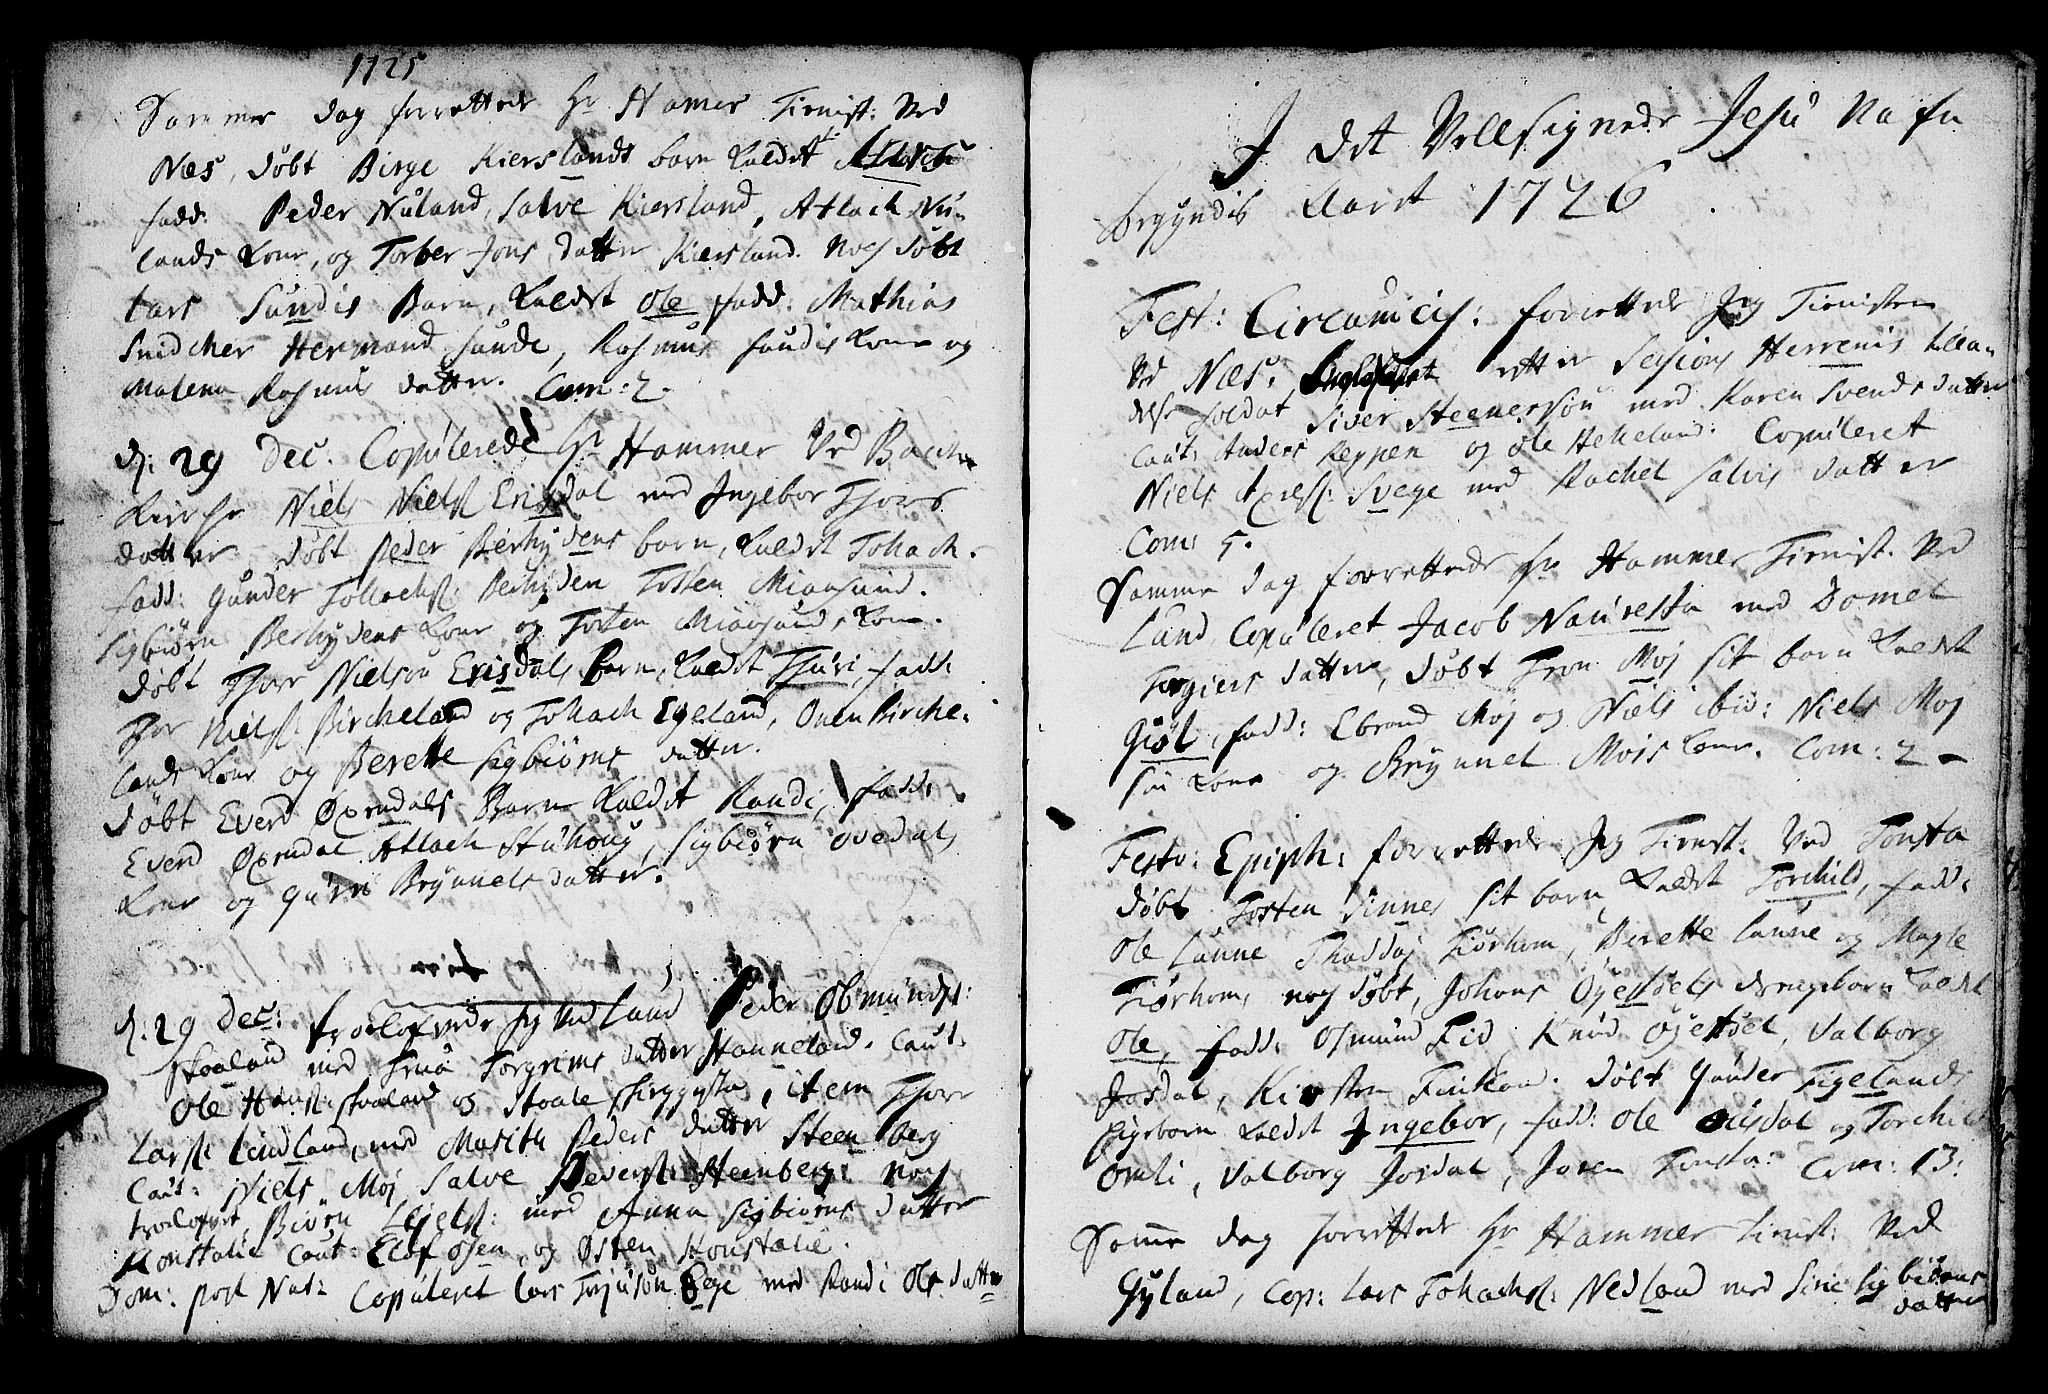 1725
Sammer dag forrettede Hr Hamer Tienist: Ved
Næs, døbt Birge Kierslands barn kaldet
fadd: Peder Nuland, Salve Kiersland, Atlach Nu-
lands kone, og Torber Jons datter Kiersland. Noch døbt
Lars Sundis Barn, kaldet Ole fadd: Mathias
Snidcher Hermand Sunde, Rasmus Sundis kone og
Malena Rasmus datter. Com: 2.
d: 29 Dec. Copulerede Hr Hammer Ved Bache
Kirche Niels Nielss: Erisdal med Ingebor Thors
datter døbt Peder Berhydens barn, kaldet Tollach.
fadd: Gunder Tollachss: Berhyden Tosten Miaasund.
Sigbiørn Berhydens kone og Tosten Miaasunds kone.
døbt Thore Nielson Erisdals barn, kaldet Thuri, fadd:
Thor Nielss: Bircheland og Tollach Egeland, Oven Birche-
lands kone og Berette Sigbiørns datter.
døbt Everd Øxendals Barn kaldet Randi, fadd:
Everd Øxendal Atlach Stuhoug, Sigbiørn Ovedals
kone og Guri Brynnels datter.
d: 29 Dec: trolofvede Jeg Ved Lund Peder Obmundss:
Skaaland med Trua Torgrims datter Hanneland. Caut:
Ole Hanss: Skaaland og Staale Skeggesta, item Thore
Larss: Lindland, med Marith Peders datter Steenberg
Caut: Niels Moj Salve Pederss: Steenberg: Noch
trolofvet, Biørn Lejelss: med Anna Sigbiørns datter
Konstalie Caut: Elof Osen, og Østen Konstalie.
Dom: post Nat: Copuleret Lars Torjuson Ege med Randi Ols datter
I det Vellsignede Jesu Nafn
begyndis Aaret 1726.
Fest: Circumcis: forrettede Jeg Tienisten
Ved Næs. efter Sessions Herrenis tilla-
delse soldat Siver Steenerson med Karen Svends datter
Caut: Anders Reppen og Ole Hekeland: Copuleret
Niels Axelss: Svege med Rachel Salvis datter
Com: 5.
Samme dag forrettede Hr Hammer Tienist. Ved
Lund Copuleret Jacob Nauresta med Domet
Torgiers datter, døbt Tron Moj sit barn kaldet
Giøl, fadd: Ebrand Moj og Niels ibid: Niels Moj
sin kone og Brynnel Mois kone. Com: 2 -
Festo: Epiph: forrettede Jeg Tienst: Ved Tonsta
døbt Tosten Sinnes sit barn kaldet Torchild, fadd:
Ole Lunne Thaddaj Fiørhom, Berette Lunne og Magle
Fiørhom, noch døbt, Johans Øyessels drengebarn kaldet
Ole, fadd: Osmund Fid, Knud Øyessel, Valborg
Josdal, Kirsten Finkaa. døbt Gunder Tigelands
Pigebarn kaldet Ingebor, fadd: Ole Ousdal og Torchild
Omli, Valborg Josdal, Joren Tonsta: Com: 13:
Samme dag forrettede Hr Hammer tienst: Ved
Gyland, Cop: Lars Tollachss: Nedland med Sine Sigbiørns
datter